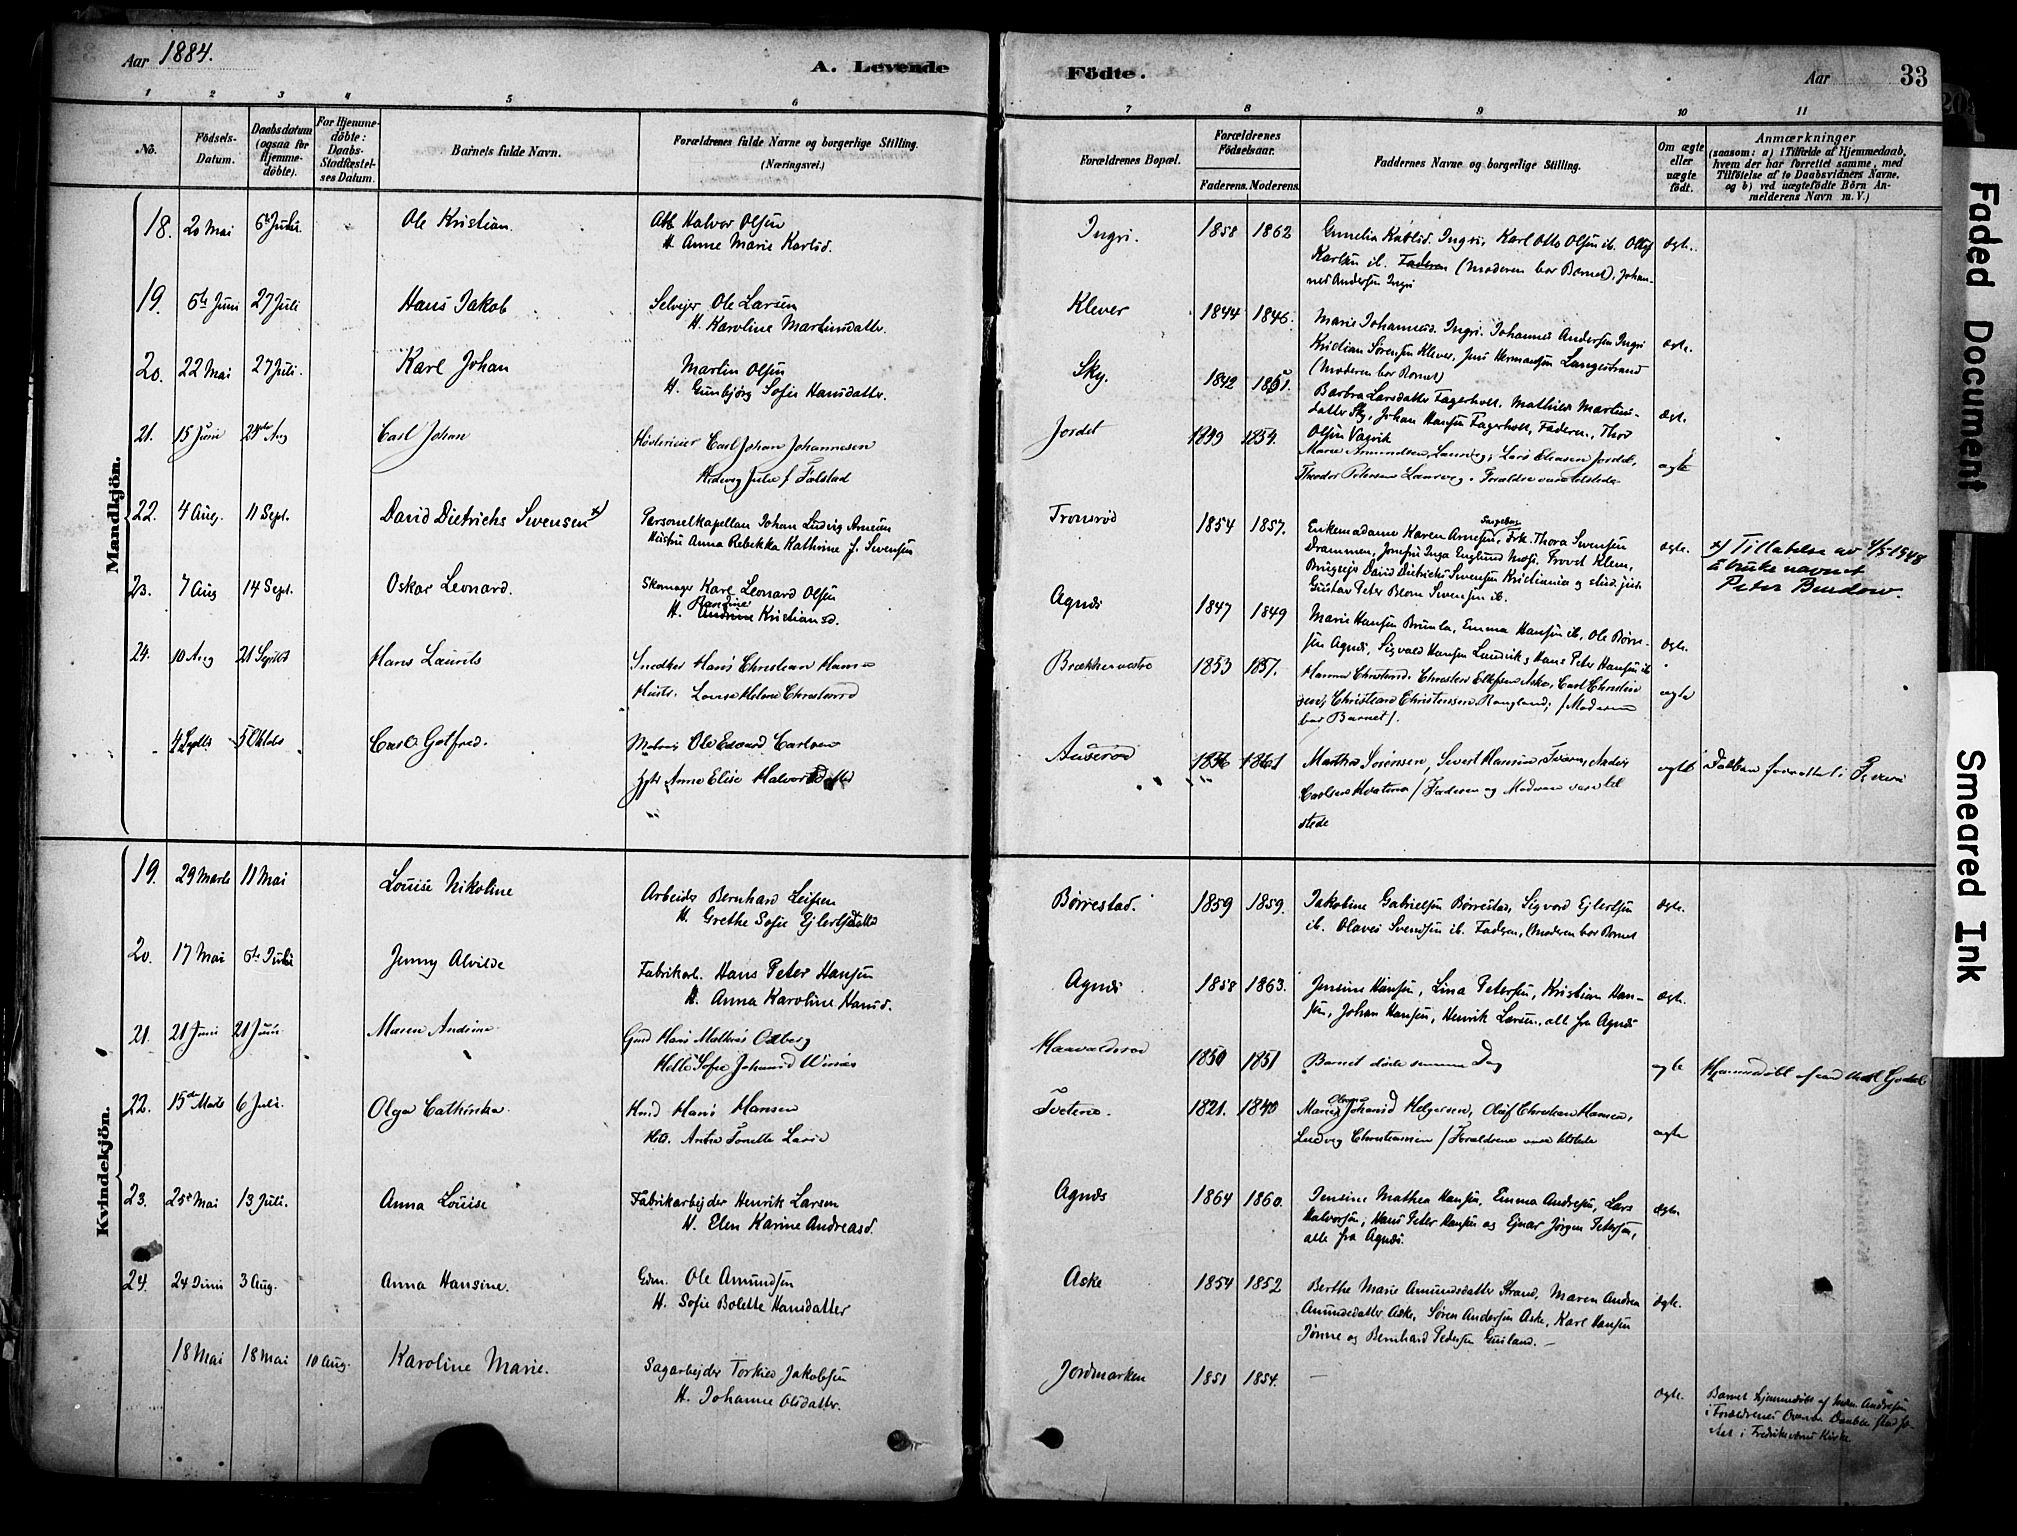 Aar 1884.
A. Levende
Födte.
Aar
33
1 2 3 4 5 6 7 8 9 10 11
No.
Födsels-
Datum.
Daabsdatum
(ogsaa for
Hjemme-
döbte).
For Hjemme-
döbte:
Daabs-
Stadfæstel-
ses Datum.
Barnets fulde Navn.
Forældrenes fulde Navne og borgerlige Stilling.
(Næringsvei.)
Forældrenes Bopæl.
Forældrenes
Födselsaar.
Faderens. Moderens.
Faddernes Navne og borgerlige Stilling.
Om ægte
eller
uægte
födt.
Anmærkninger
(saasom: a) i Tilfælde af Hjemmedaab,
hvem der har forrettet samme, med
Tilföielse af to Daabsvidners Navne,
og b) ved uægtefödte Börn An-
melderens Navn m. V.)
Mandkjön.
18. 20 Mai 6te Juli. Ole Kristian. Halvor Olsen
H. Anne Marie Karlsd.
Ingri. 1858 1862 Karl Otto Olsen ib.
Karlsen ib. Faderen (Moderen bar Barnet), Johan-
nes Andersen Ingri
ægte.
19. 6te Juni 27 Juli Hans Jakob Selvejer Ole Larsen
H. Karoline Martinsdatter.
Klever 1844 1846. Marie Johannesd. Ingri. Johannes Andersen Ingri
Kristian Sørensen Klever, Jens Hermansen Langestrand
(Moderen bar Barnet)
ægte.
20. 22 Mai 27 Juli. Karl Johan Martin Olsen
H. Gunbjørg Sofie Hansdatter.
Sky. 1842 1851. Barbra Larsdatter Fagerholt, Mathilde Martins-
datter Sky, Johan Hansen Fagerholt, Faderen, Thor
Olsen Vagvik
ægte.
21. 15 Juni Aug Carl Johan Carl Johan Johannesen
Hedevig Julie f. Falstad
Jordet 1849 1854. Marie Amundsen, Laurvig, Lars Eliasen Jordet,
Theodor Petersen Laurvig. Forældre vare tilstede
ægte
22. 4 Aug. 11 Sept. David Dietrichs Swensen x) Personelkapellan Johan Ludvig Arnesen
Hustru Anna Rebekka Kathrine f. Swensen
Tronsrød 1854 1857. Enkemadame Karen Arnesen, Frk. Thora Swensen
Drammen, Jomfru Inga Englund Moss. Provst Klem,
David Dietrichs Swensen Kristiania og stud. jur.
Gustav Peter Blom Swensen ib.
ægte.
x) Tillatelse av 4/5-1948
å bruke navnet
Peter Bendow.
23. 7 Aug 14 Sept. Oskar Leonard. Skomager Karl Leonard Olsen
H. Karoline Kristiansd.
Agnæs 1847 1849 Marie Hansen Brunla, Emma Hansen ib, Ole Børre-
sen Agnæs, Sigvald Hansen Lundvik, Hans Peter Hansen ib
ægte.
24. 10 Aug 21 Septbr Hans Laurits Snedker Hans Christian Hansen
Hustr. Lovise Helene Christensd
1853 1857. Hanna Christensd. Christen Ellefsen Aske, Carl Christen
sen, Christian Christensen Rongland, (Moderen
bar Barnet).
ægte
4 Septbr 5 Oktobr Carl Gotfred. Ole Edvard Carlsen
Anne Elise Halvorsdatter
Auserød 1836 1861 Martha Sørensen, Sivert Hansen
Faderen og Moderen vare til
stede
ægte
Daaben forrettet i
Kvindekjön.
19. 29 Marts 11 Mai Louise Nikoline Arbeider Bernhard Leifsen
H. Grethe Sofie Ejlertsdatter
Børrestad. 1859 1859. Jakobine Gabrielsen Børrestad, Sigvard Ejlertsen
ib. Olaves Svendsen ib. Faderen, (Moderen bar Barnet
ægte.
20. 17 Mai 6te Juli Jenny Alvilde Fabrikarb. Hans Peter Hansen
H. Anna Karoline Hansd.
Agnæs 1858 1863. Jensine Hansen, Lina Petersen, Kristian Han-
sen, Johan Hansen, Henrik Larsen, alle fra Agnæs
ægte.
21. 21 Juni 21 Juni Maren Andrine Hans Mathias Odberg
Sofie Johansd
1850 1851 Barnet døde samme Dag
ægte
22. 15de Marts 6 Juli. Olga Cathinka. Hans Hansen
Antia Tonette Larsd
Tvetene. 1821. 1840 Johansd Helgesen, Olaf Christian Hansen,
Ludvig Christiansen / Forældrene vare tilstede
ægte
23. 25de Mai 13 Juli. Anna Louise Fabrikarbejder Henrik Larsen
H. Elen Karine Andreasd.
Agnæs 1864 1860. Jensine Mathea Hansen, Emma Andresen, Lars
Halvorsen, Hans Peter Hansen og Ejnar Jørgen Petersen,
alle fra Agnæs.
ægte
24. 24 Juni 3 Aug. Anna Hansine. Gdm. Ole Amundsen
H. Sofie Bolette Hansdatter
Aske 1854 1852 Berthe Marie Amundsdatter Strand, Maren Andrea
Amundsdatter Aske, Søren Andersen Aske, Karl Hansen
Jønne og Bernhard Pedersen Gusland. —
ægte.
18 Mai 18 Mai 10 Aug. Karoline Marie. Sagarbejder Torkild Jakobsen
H. Johanne Olsdatter.
Jordmarken 1851 1854. —
ægte.
Barnet hjemmedøbt af Andresen
i Forældrenes Daaben stadfæ-
stet i Fredriksværns Kirke
Faded Document
Smeared Ink